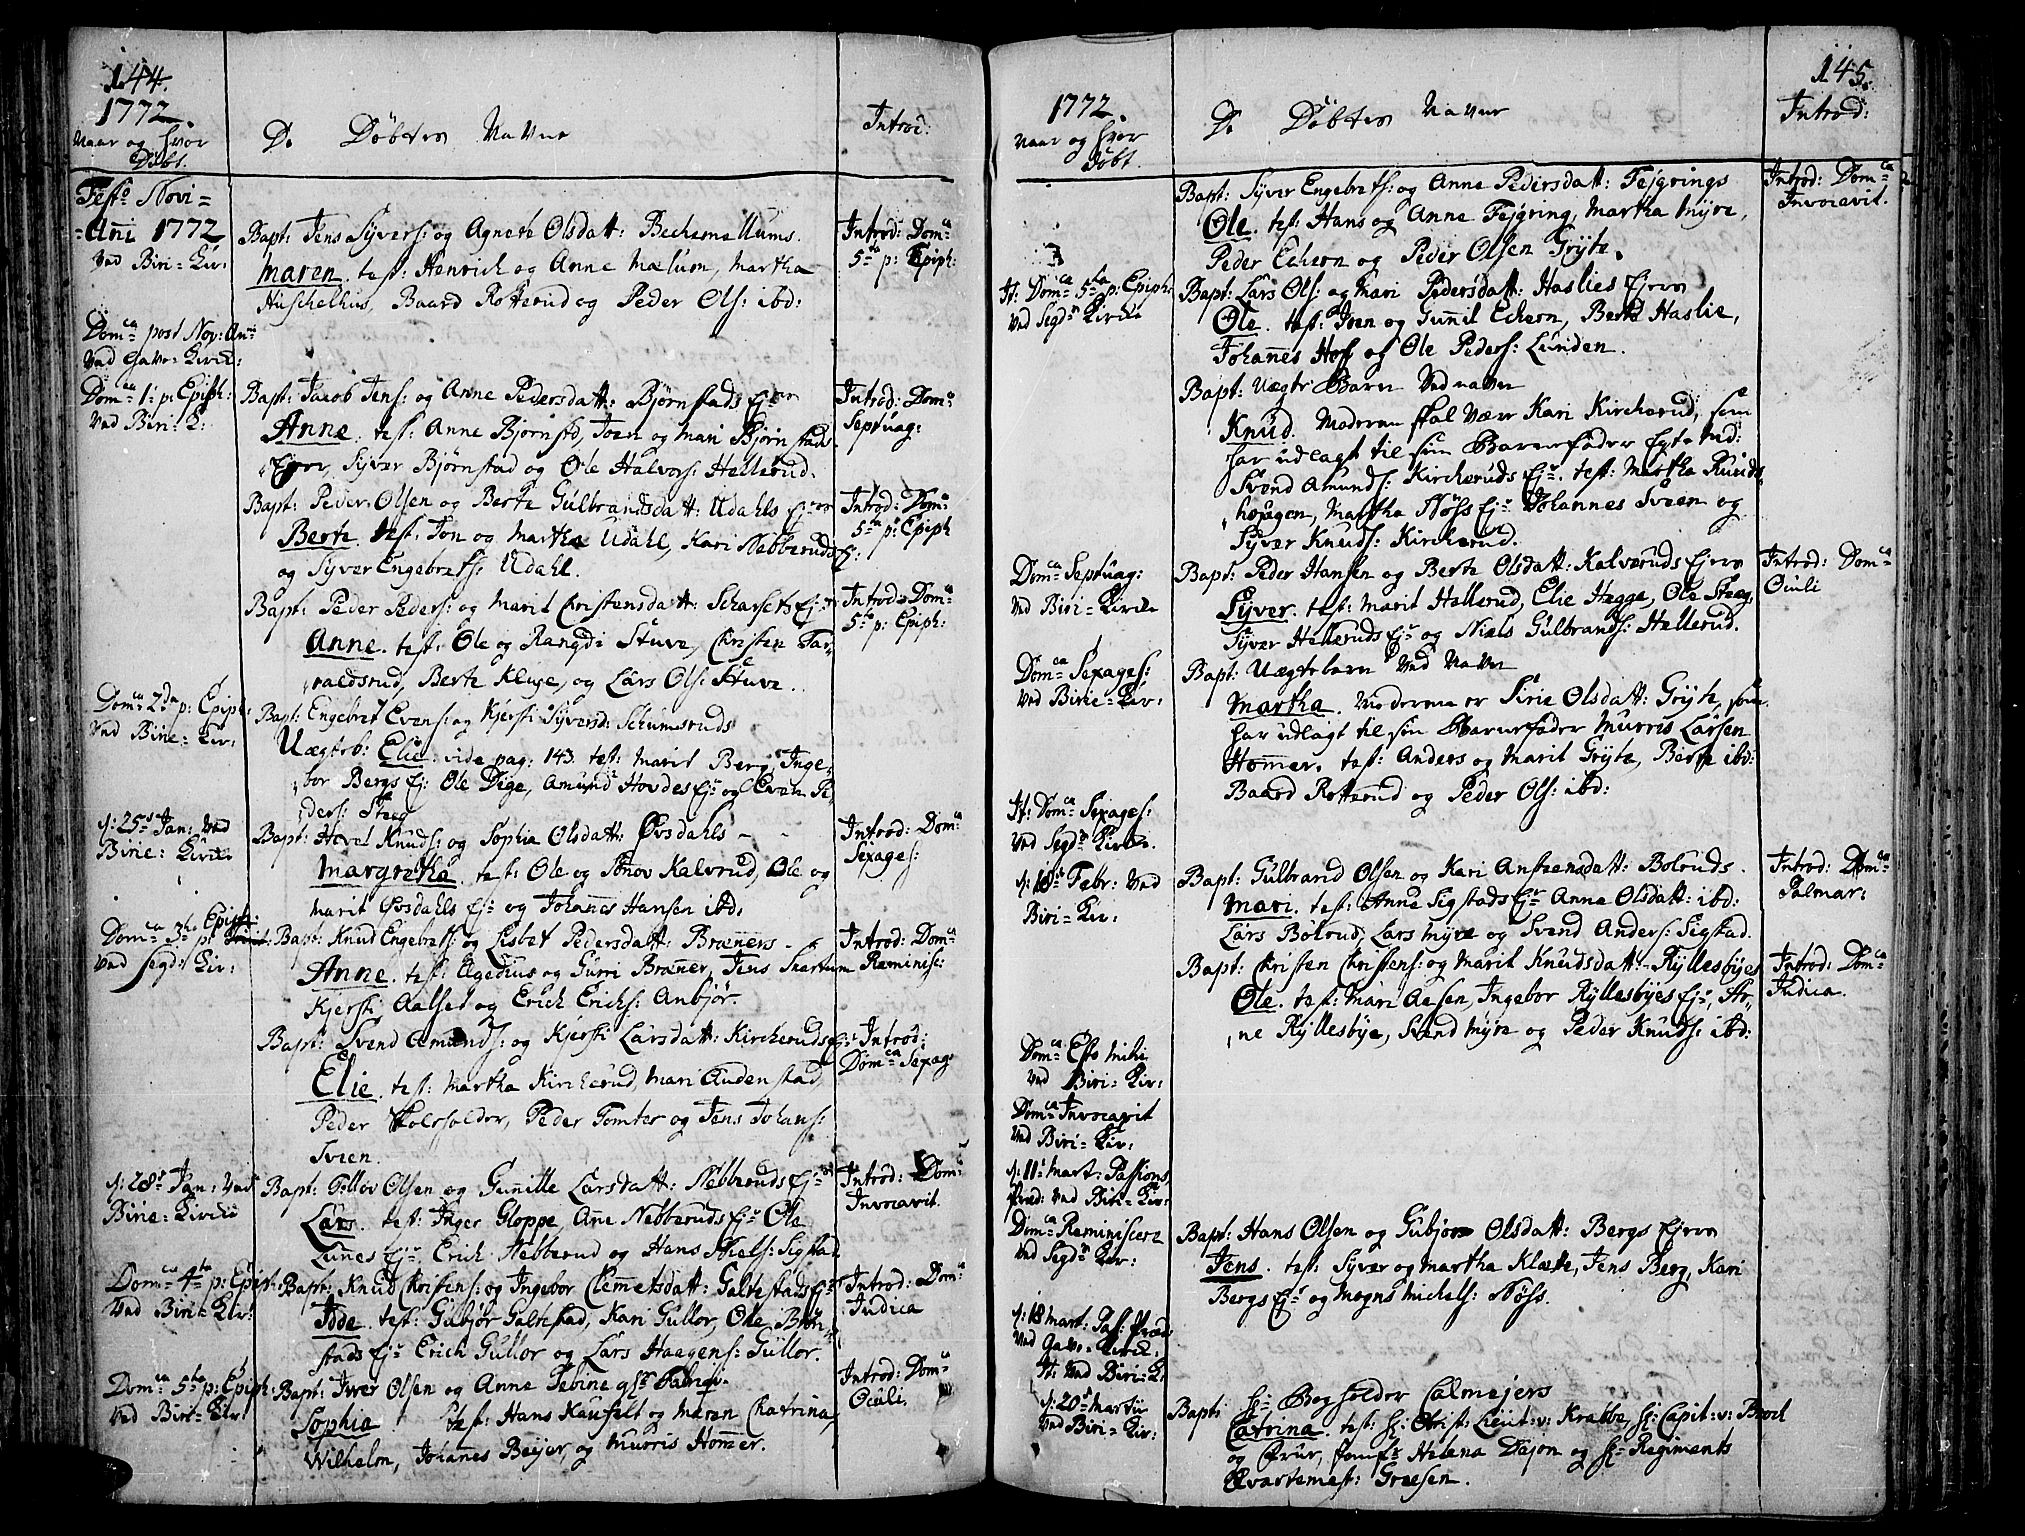 144.
1772.
Naar og hvor
Döbt.
De Döbtes Navne
Introd:
Festo Novi=
=Anni 1772
Ved Biri=Kir:
Bapt: Jens Syvers: og Agnete Olsdatt: Bechemellums.
Maren. test: Henrich og Anne Mælum, Martha
Huschelhus, Baard Rotterud og Peder Ols: ibd:
Introd: Dom:ca
5ta p: Epiph:
Dom:ca post Nov: Anni
Ved Gave=Kirche:
Dom:ca 1: p: Epiph:
Ved Biri=K:
Bapt: Jacob Jens: og Anne Pedersdatt: Bjørnstads Ejer
Anne. test: Anne Bjørnstd, Joen og Mari Bjørnstads
Ejer, Syver Bjørnstad og Ole Halvors: Hellerud.
Introd: Dom:
Septuag:
Bapt: Peder Olsen og Berte Gulbrandsdatt: Udahls Ejer
Berte. test: Jon og Martha Udahl, Kari Nebberuds
og Syver Engebrets: Udahl.
Introd: Dom:
5ta p: Epiph
Bapt: Peder Peders: og Marit Christensdatt: Scharsets Ej:
Anne. test: Ole og Rangdi Stuve, Christen Tar-
raldsrud, Berte Kluge, og Lars Ols: Stuve.
Introd: Dom:
5ta p: Epiph:
Dom:ca 2da p: Epiph:
Ved Birie=Kir:
Bapt: Engebret Evens: og Kjersti Syversd: Schumsruds
Uægteb: Elie. vide pag: 143. test: Marit Berg, Inge-
bor Bergs Ej: Ole Dige, Amund Hovdes Ej: og Even Pe-
ders: Steg
d: 25s Jan: Ved
Birie=Kirche
Bapt: Hovel Knuds: og Sophia Olsdatt: Øvsdahls
Margretha. test: Ole og Sønov Kalvrud, Ole og
Marit Øvsdahls Ej: og Johannes Hansen ibd:
Introd: Dom:
Sexages:
Dom:ca 3tia p: Epiph:
Ved Segd: Kir:
Bapt: Knud Engebrets: og Lisbet Pedersdatt: Brænners
Anne. test: Egedius og Gurri Brænner, Jens Skartum
Kjersti Aalset og Erich Erichs: Anbjør.
Introd: Dom:ca
Reminisc:
Bapt: Svend Amunds: og Kjersti Larsdatt: Kircheruds
Elie. test: Martha Kircherud, Mari Audenstad
Peder Skolesolder, Peder Tomter og Jens Johans:
Sveen.
Introd:
Dom:ca Sexag:
d: 28s Jan: Ved
Birie=Kirche
Bapt: Tollov Olsen og Gunnille Larsdatt: Nebberuds Ej:
Lars. test: Inger Gloppe, Ane Nebberuds Ej: Ole
Lunnes Ej: Erich Nebberud og Hans Niels: Sigstad
Introd: Dom:
Invocavit.
Dom:ca 4ta p: Epiph:
Ved Biri=Kir:
Bapt: Knud Christens: og Ingebor Clemmetsdatt: Galtestads Ej:
Idde. test: Gubjør Galtestad, Kari Gullor, Ole Brun-
stads Ej: Erich Gullor og Lars Haagens: Gullor.
Introd: Dom:
Judica
Dom:ca 5ta p: Epiph:
Ved Biri=Kir:
Bapt: Iver Olsen og Anne Sebine
Sophia test: Hans Kaufelt og Maren Chatrina,
Wilhelm, Johannes Beyer, og Murris Hommer.
Introd: Dom:
Oculi.
145.
1772.
Naar og hvor
Döbt.
De Döbtes Navne
Introd:
Bapt: Syver Engebrets: og Anne Pedersdatt: Fejgrings
Ole. test: Hans og Anne Fejgring, Martha Myre,
Peder Echern og Peder Olsen Gryte.
Introd: Dom:ca
Invocavit.
It: Dom:ca 5ta p: Epiph:
Ved Segd: Kirche
Bapt: Lars Ols: og Mari Pedersdatt: Haslies Ejere
Ole. test: Joen og Gunnil Echern, Berte Haslie,
Johannes Hof og Ole Peders: Lunden.
Bapt: Uægte Barn Ved navn
Knud. Moderen skal være Kari Kircherud, som
har udlagt til sin Barnefader Egte Md:
Svend Amunds: Kircheruds Ej: test: Martha Ruuds
hougen, Martha Nøss Ej: Johannes Sveen og
Syver Knuds: Kircherud.
Dom:ca Septuag:
Ved Biri=Kirche
Bapt: Peder Hansen og Berte Olsdatt: Kalveruds Ejere
Syver. test: Marit Hellerud, Elie Hegge, Ole Steg,
Syver Helleruds Ej: og Niels Gulbrands: Hellerud.
Introd: Dom:ca
Oculi
Dom:ca Sexages:
Ved Birie=Kir:
Bapt: Uægtebarn Ved Navn
Martha. Moderen er Sirie Olsdatt: Gryte, som
har udlagt til sin Barnefader Murris Larsen
Hommer. test: Anders og Marit Gryte, Berte ibd:
Baard Rotterud og Peder Ols: ibd:
It: Dom:ca Sexages:
Ved Segd: Kirche.
d: 18 Febr: Ved
Biri=Kir:
Bapt: Gulbrand Olsen og Kari Anstensdatt: Bolruds.
Mari. test: Anne Sigstads Ej: Anne Olsdatt: ibd:
Lars Bolrud, Lars Myre og Svend Anders: Sigstad.
Introd: Dom:
Palmar:
Bapt: Christen Christens: og Marit Knudsdatt: Ryllesbyes
Ole. test: Mari Aasen, Ingebor Ryllesbyes Ej: Ar-
ne Ryllesbye, Svend Myre og Peder Knuds: ibd:
Introd: Dom:ca
Judica.
Dom:ca Esto Mihi
Ved Biri=Kir:
Dom:ca Invocavit
Ved Biri=Kir:
d: 11 Mart: Passions
Præd: Ved Biri=Kir:
Dom:ca Reminiscere
Ved Segd: Kir:
Bapt: Hans Olsen og Gubjør Olsdatt: Bergs Ejere
Jens. test: Syver og Martha Klætte, Jens Berg, Kari
Bergs Ej: og Mogns Michels: Nøss.
d: 18 Mart: Pas: Præd:
Ved Gave=Kirche
It: Ved Biri=K:
d: 20 Martii
Ved Biri=Kir:
Bapt: Hr: Bergfolder Calmejers
Catrina. test: Hr: Obrist: Lieut: v: Krabbe, Hr: Capit: v: Brock
og Frue, Jomfr: Helena Dajon og Hr: Regiments
Qvartermest: Greesen.